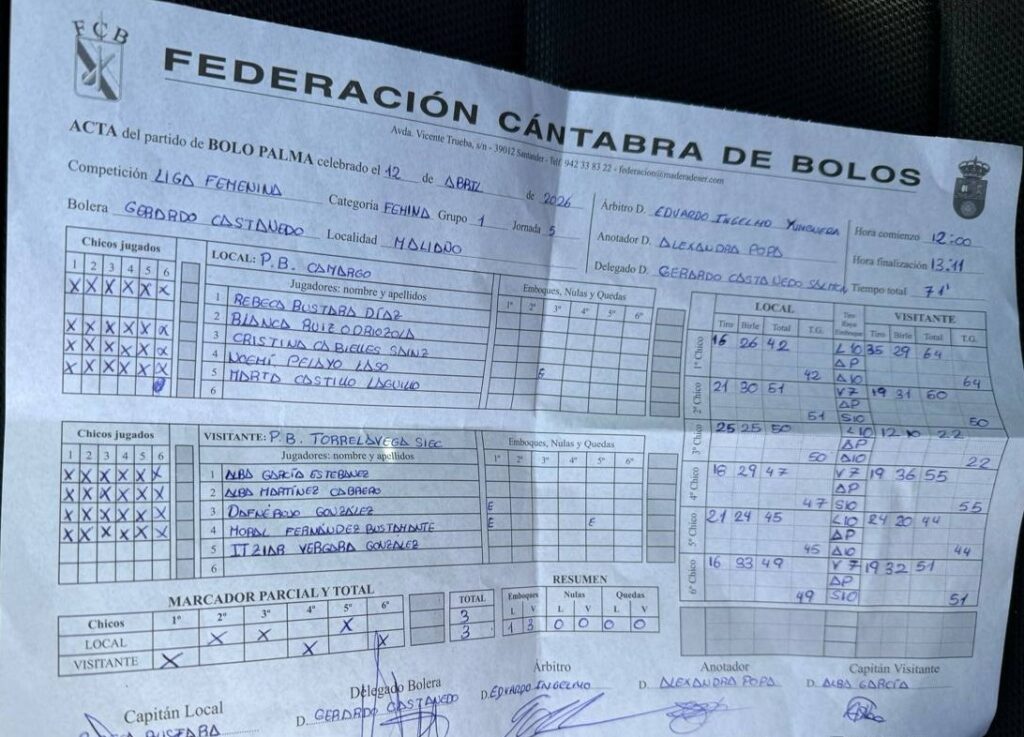 FCB
FEDERACIÓN CÁNTABRA DE BOLOS
Avda. Vicente Trueba, s/n - 39012 Santander - Telf. 942 33 83 22 - federacion@maderadeser.com
ACTA del partido de BOLO PALMA celebrado el 12 de ABRIL de 2026
Competición LIGA FEMENINA Categoría FEMINA Grupo 1 Jornada 5
Bolera GERARDO CASTANEDO Localidad MALIAÑO
Árbitro D. EDUARDO INGELMO
Anotador D. ALEXANDRA POPA
Delegado D. GERARDO CASTANEDO
Hora comienzo 12:00
Hora finalización 13.11
Tiempo total 71'
Chicos jugados
1 2 3 4 5 6
X X X X X X
X X X X X X
X X X X X X
X X X X X X
LOCAL: P.B. CAMARGO
Jugadores: nombre y apellidos
1 REBECA BUSTARA DÍAZ
2 BLANCA RUIZ ODRIOZOLA
3 CRISTINA CABIELLES SAINZ
4 NOEMÍ PELAYO LASO
5 MARTA CASTILLO LAGUILLO
6
Emboques, Nulas y Quedas
1º 2º 3º 4º 5º 6º
E
Chicos jugados
1 2 3 4 5 6
X X X X X X
X X X X X X
X X X X X X
X X X X X X
VISITANTE: P.B. TORRELAVEGA SIEC
Jugadores: nombre y apellidos
1 ALBA GARCÍA ESTEBANEZ
2 ALBA MARTÍNEZ CABRERO
3 GONZALEZ
4 FERNÁNDEZ BUSTAMANTE
5 ITZIAR VERGARA GONZALEZ
6
Emboques, Nulas y Quedas
1º 2º 3º 4º 5º 6º
E
E E
LOCAL VISITANTE
Tiro Birle Total T.G. Tiro Raya Emboque Tiro Birle Total T.G.
1º Chico 16 26 42 L10 35 29 64
ΔP
42 Δ10 64
2º Chico 21 30 51 V7 19 31 50
ΔP
51 S10 50
3º Chico 25 25 50 L10 12 10 22
ΔP
50 Δ10 22
4º Chico 18 29 47 V7 19 36 55
ΔP
47 S10 55
5º Chico 21 24 45 L10 24 20 44
ΔP
45 Δ10 44
6º Chico 16 33 49 V7 19 32 51
ΔP
49 S10 51
MARCADOR PARCIAL Y TOTAL
Chicos 1º 2º 3º 4º 5º 6º TOTAL
LOCAL X X X 3
VISITANTE X X X 3
RESUMEN
Emboques Nulas Quedas
L V L V L V
1 3 0 0 0 0
Capitán Local
BUSTARA
Delegado Bolera
D. GERARDO CASTANEDO
Árbitro
D. EDUARDO INGELMO
Anotador
D. ALEXANDRA POPA
Capitán Visitante
D. ALBA GARCÍA